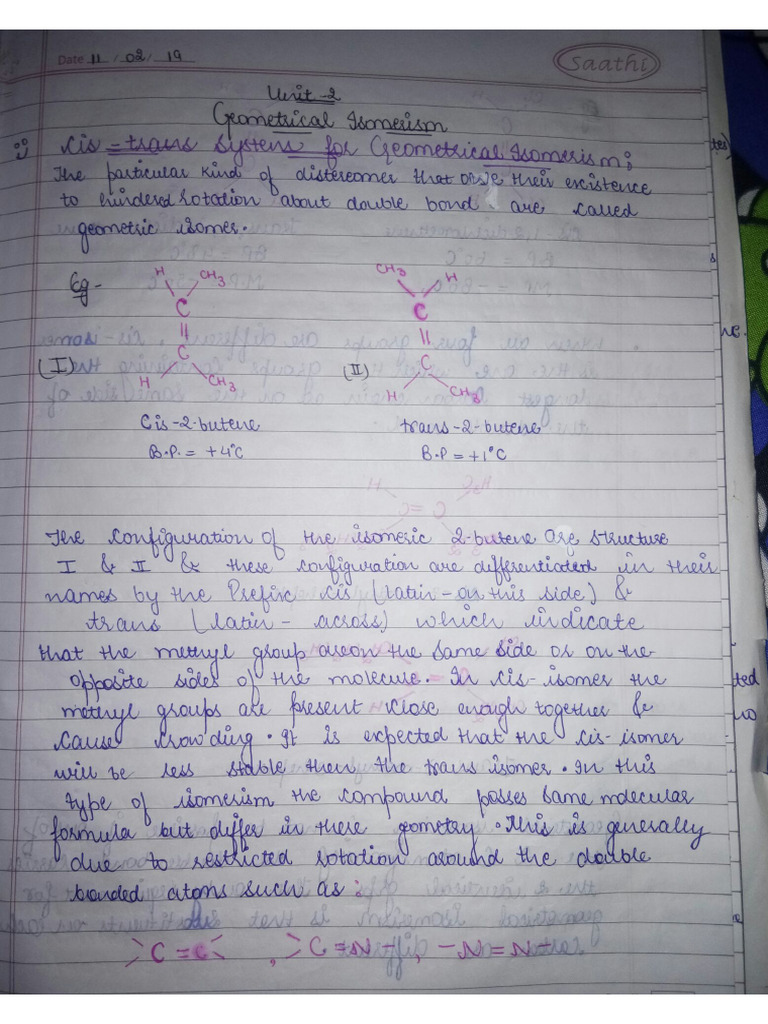 Date 11 / 02 / 19
Saathi
Unit-2
Geometrical Isomerism
cis-trans system for Geometrical Isomerism;
The particular kind of distereomer that owe their existence
to hindered rotation about double bond are called
geometric isomer.
Eg-
H CH3 CH3 H
C C
C C
(I) (II)
H CH3 H CH3
Cis-2-butene trans-2-butene
B.P. = +4°C B.P = +1°C
The configuration of the isomeric 2-butene are structure
I & II & these configuration are differentiated in their
names by the Prefix cis (latin-on this side) &
trans (latin- across) which indicate
that the methyl group are on the same side or on the
opposite sides of the molecule. In cis-isomer the
methyl groups are present close enough together &
cause crowding. It is expected that the cis-isomer
will be less stable then the trans isomer. In this
type of isomerism the compound posses same molecular
formula but differ in there gometry. This is generally
due to restricted rotation around the double
bonded atoms such as:
>C=C<, >C=N-, -N=N-